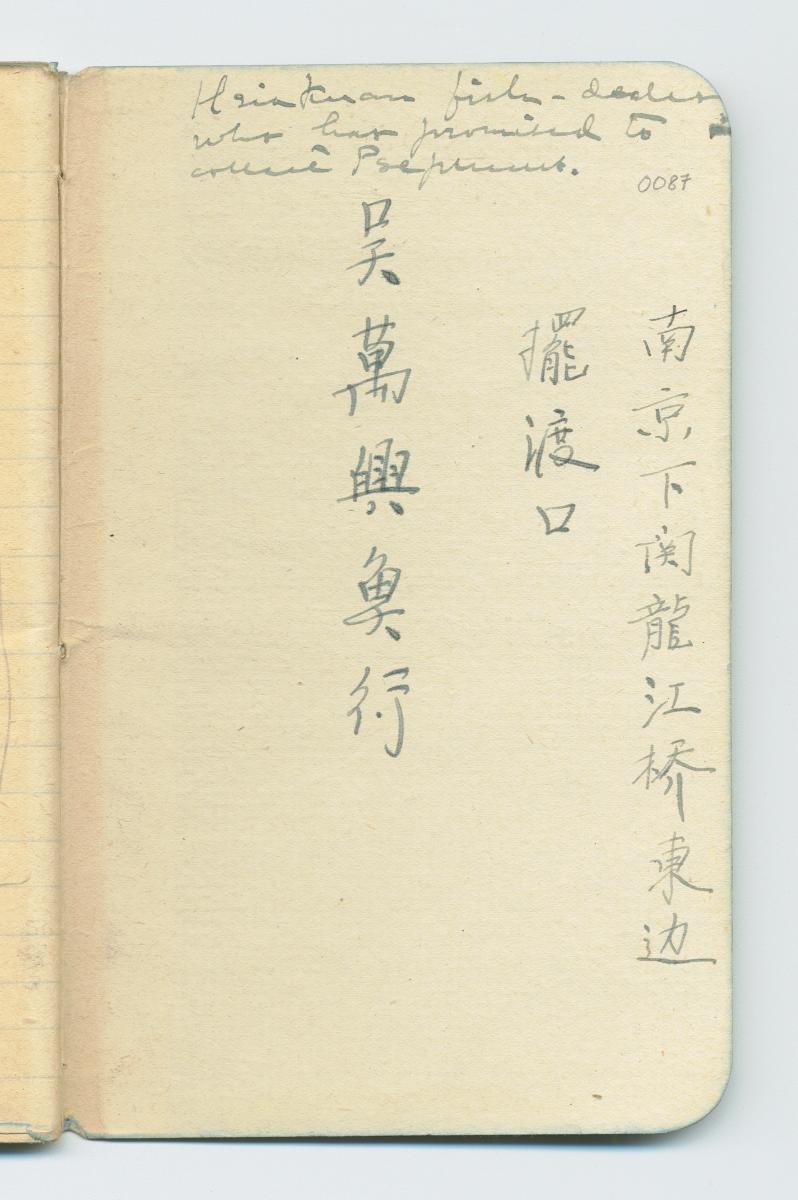 Hsiakuan fish-dealer
who has promised to
collect Psephurus.
0087
南京下関龍江桥東边
擺渡口
吴萬興魚行